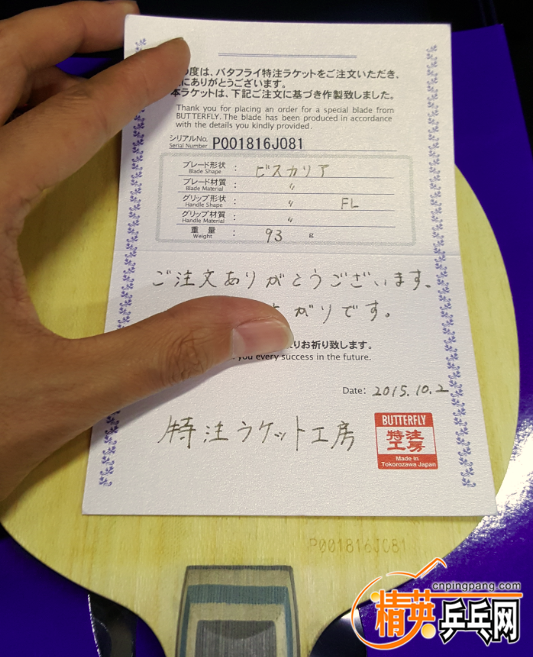 の度は、バタフライ特注ラケットをご注文いただき、
にありがとうございます。
本ラケットは、下記ご注文に基づき作製致しました。
Thank you for placing an order for a special blade from
BUTTERFLY. The blade has been produced in accordance
with the details you kindly provided.
シリアルNo.
Serial Number
P001816J081
ブレード形状
Blade Shape
: ビスカリア
ブレード材質
Blade Material
: 〃
グリップ形状
Handle Shape
: 〃 FL
グリップ材質
Handle Material
: 〃
重量
Weight
: 93 g
ご注文ありがとうございます。
がりです。
りお祈り致します。
you every success in the future.
Date: 2015.10.2
特注ラケット工房
BUTTERFLY
特注
工房
Made in
Tokorozawa Japan
P001816J081
cnpingpang.com
精英乒乓网